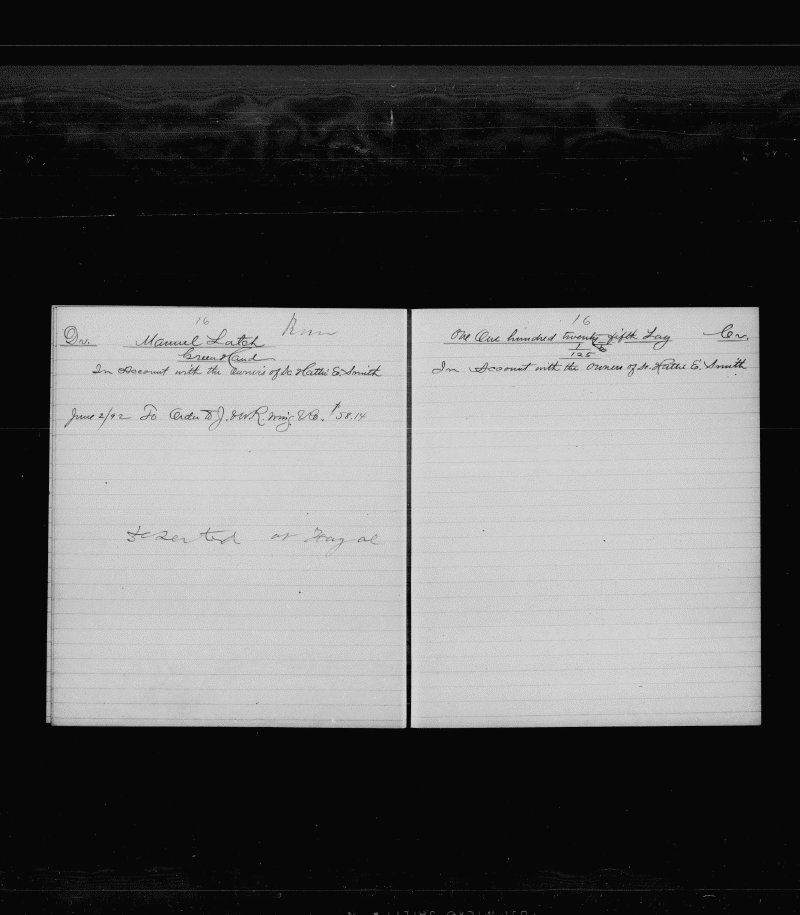 16
Dr. Manuel Latch
Green Hand
In Account with the owners of Sc Hattie E. Smith
June 2/92 To Order to J. & W. R. Wing & Co. $58.14
Deserted at Fayal
16
One One hundred twenty fifth Lay Cr.
1/125
In Account with the owners of Sc. Hattie E. Smith